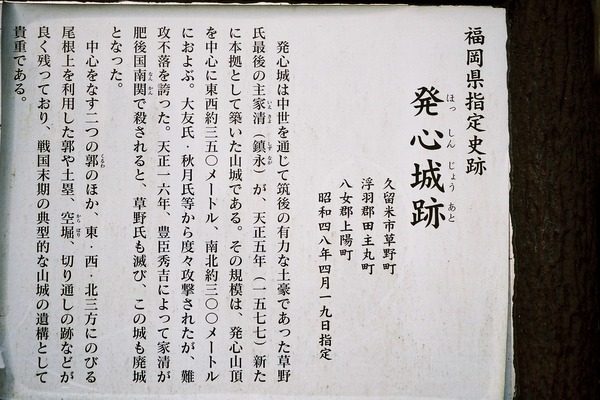 福岡県指定史跡
発心城跡
ほっしんじょうあと
久留米市草野町
浮羽郡田主丸町
八女郡上陽町
昭和四八年四月一九日指定
発心城は中世を通じて筑後の有力な土豪であった草野
氏最後の主家清（鎮永）が、天正五年（一五七七）新た
に本拠として築いた山城である。その規模は、発心山頂
を中心に東西約三五〇メートル、南北約三〇〇メートル
におよぶ。大友氏・秋月氏等から度々攻撃されたが、難
攻不落を誇った。天正一六年、豊臣秀吉によって家清が
肥後国南関で殺されると、草野氏も滅び、この城も廃城
となった。
中心をなす二つの郭のほか、東・西・北三方にのびる
尾根上を利用した郭や土塁、空堀、切り通しの跡などが
良く残っており、戦国末期の典型的な山城の遺構として
貴重である。